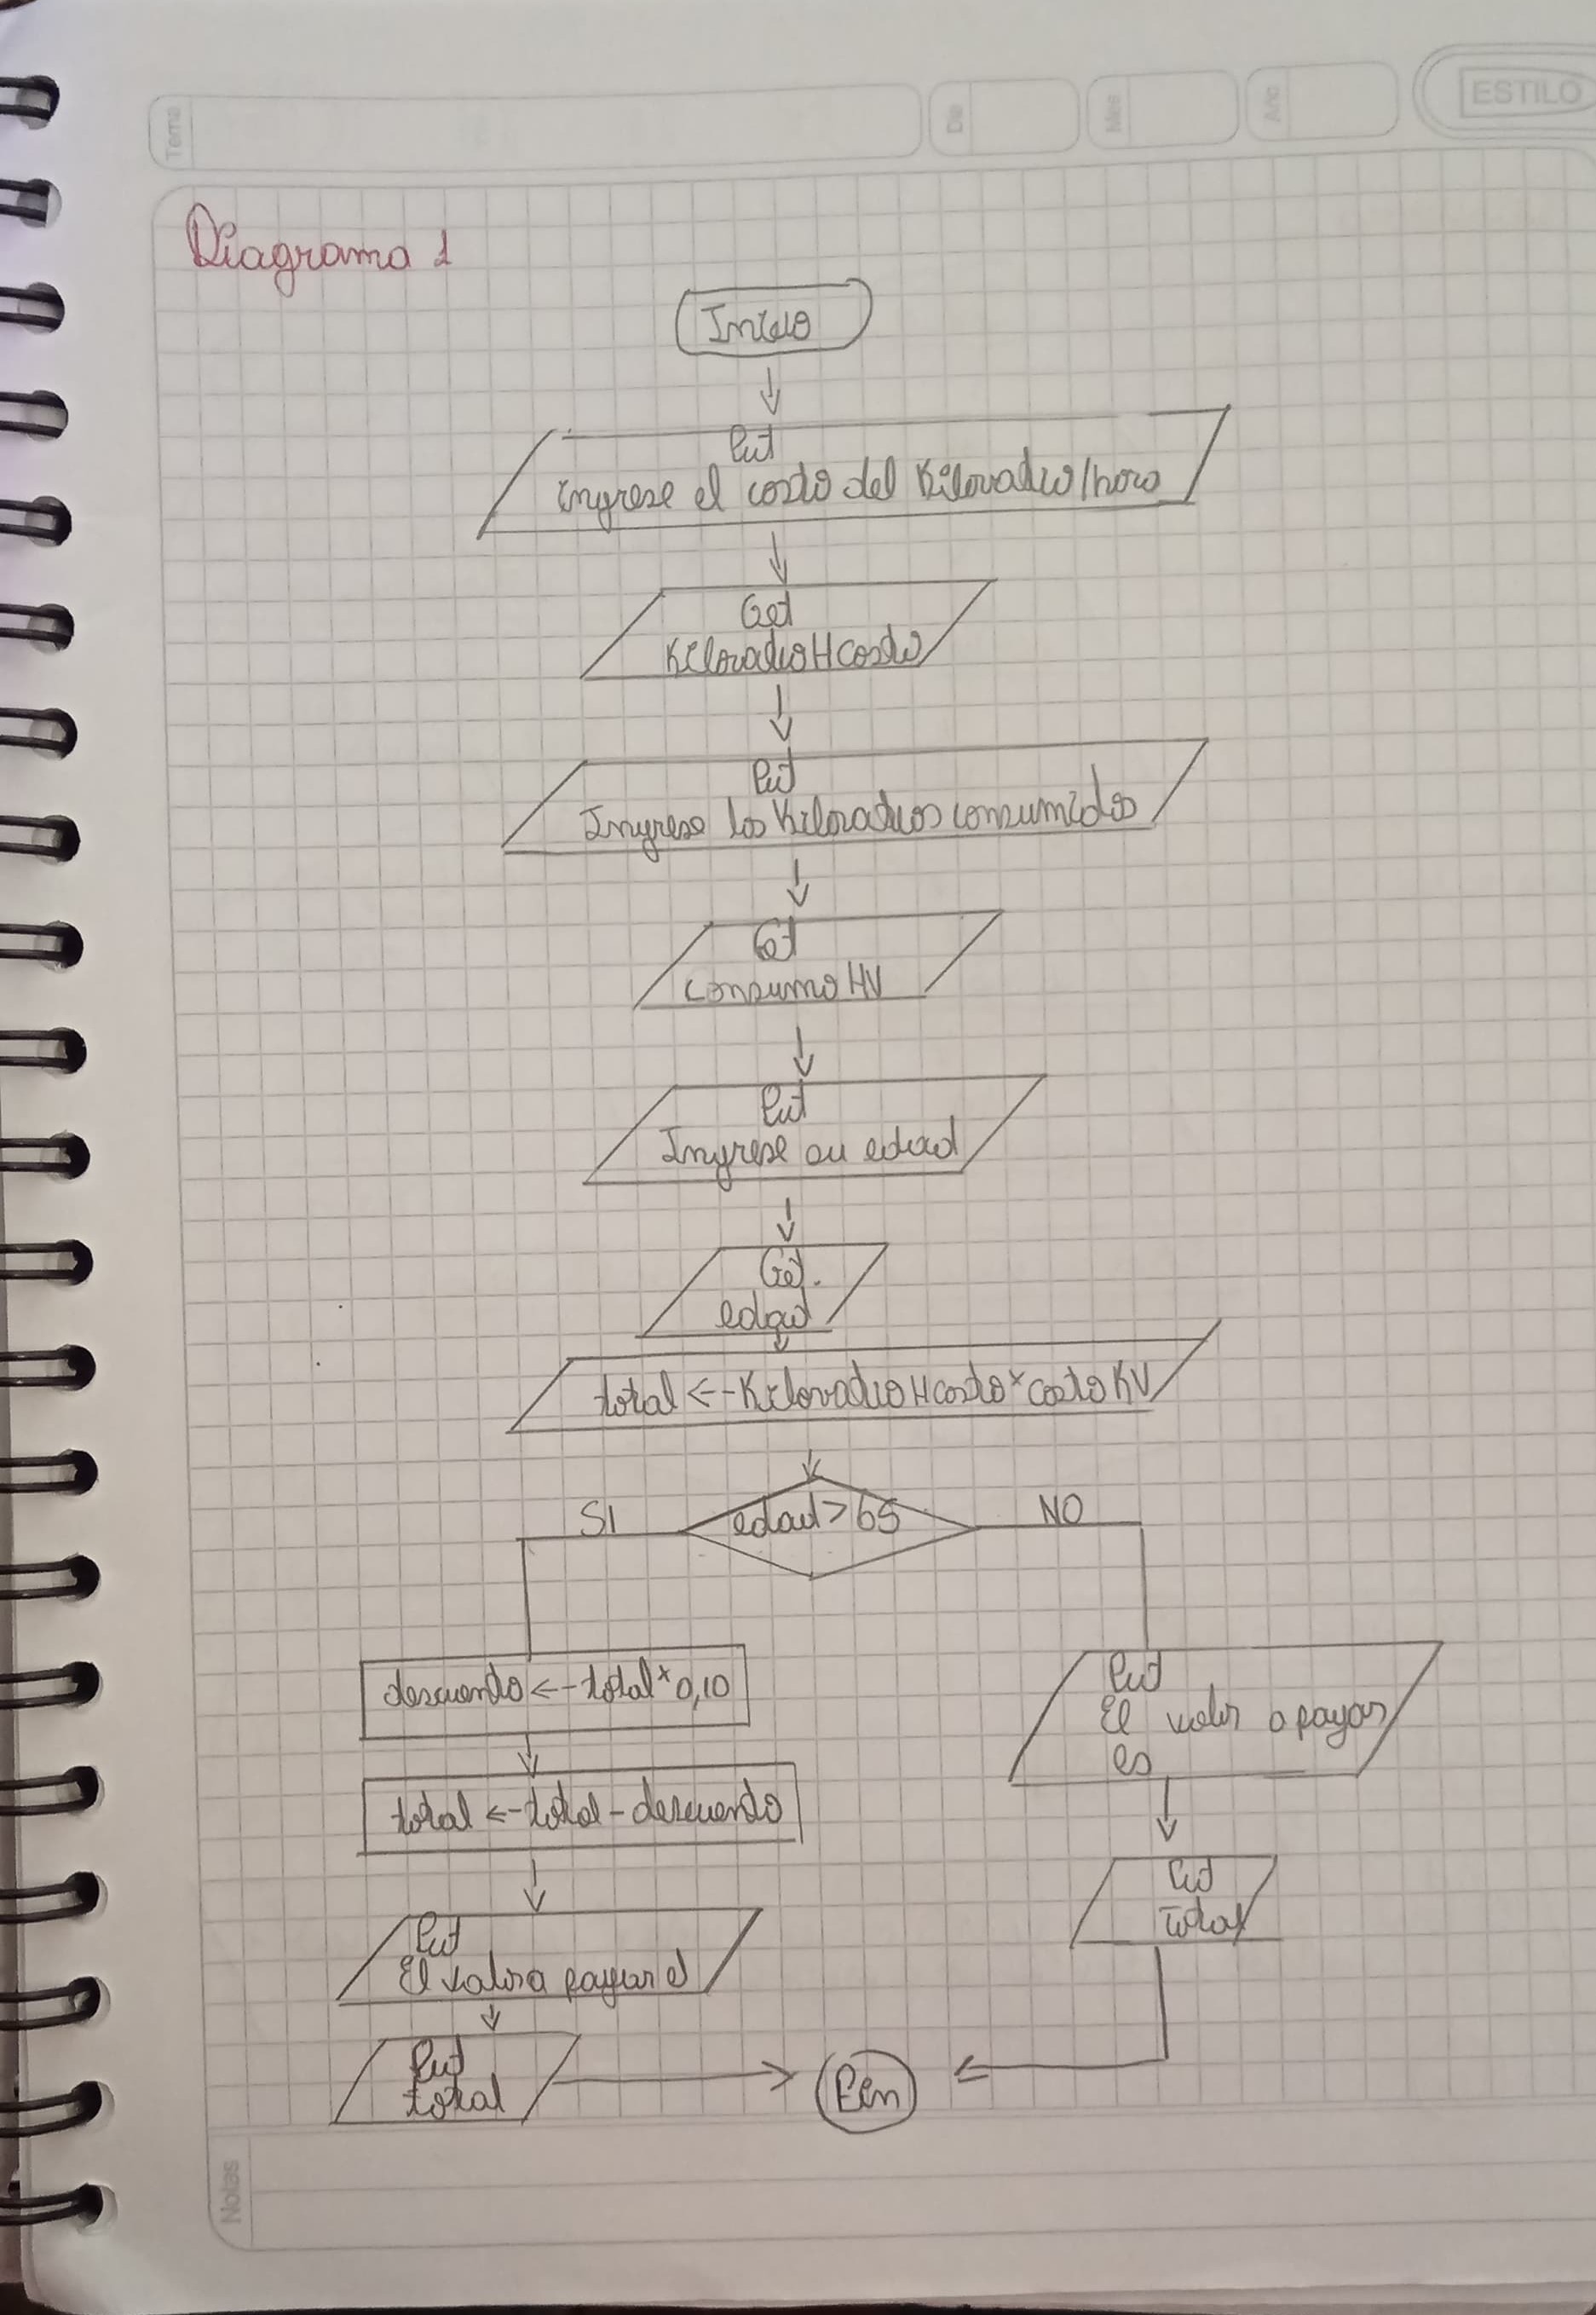 Tema
Dia
Mes
Año
ESTILO
Diagrama 1
Inicio
Put
ingrese el costo del Kilovatio/hora
Get
KilovatioHcosto
Put
Ingrese los Kilovatios consumidos
Get
consumo HV
Put
Ingrese su edad
Get.
edad
total <-- KilovatioHcosto*costo KV
SI
edad > 65
NO
descuento <-- total * 0,10
Put
El valor a pagar
es
total <-- total - descuento
Put
total
Put
El valor a pagar el
Put
total
Fin
Notas